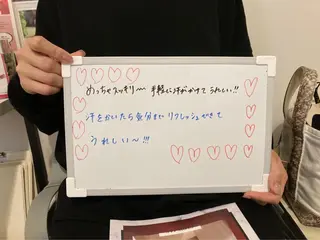 めっちゃスッキリ〜 手軽に汗がかけてうれしい!!
汗をかいたら気分までリフレッシュできて
うれしい〜!!!